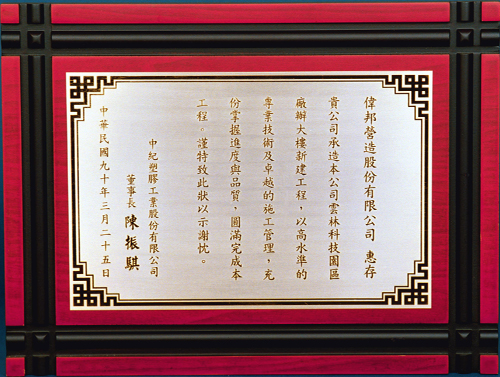 偉邦營造股份有限公司 惠存
貴公司承造本公司雲林科技園區
廠辦大樓新建工程，以高水準的
專業技術及卓越的施工管理，充
份掌握進度與品質，圓滿完成本
工程。謹特致此狀以示謝忱。
中紀塑膠工業股份有限公司
董事長 陳振騏
中華民國九十年三月二十五日